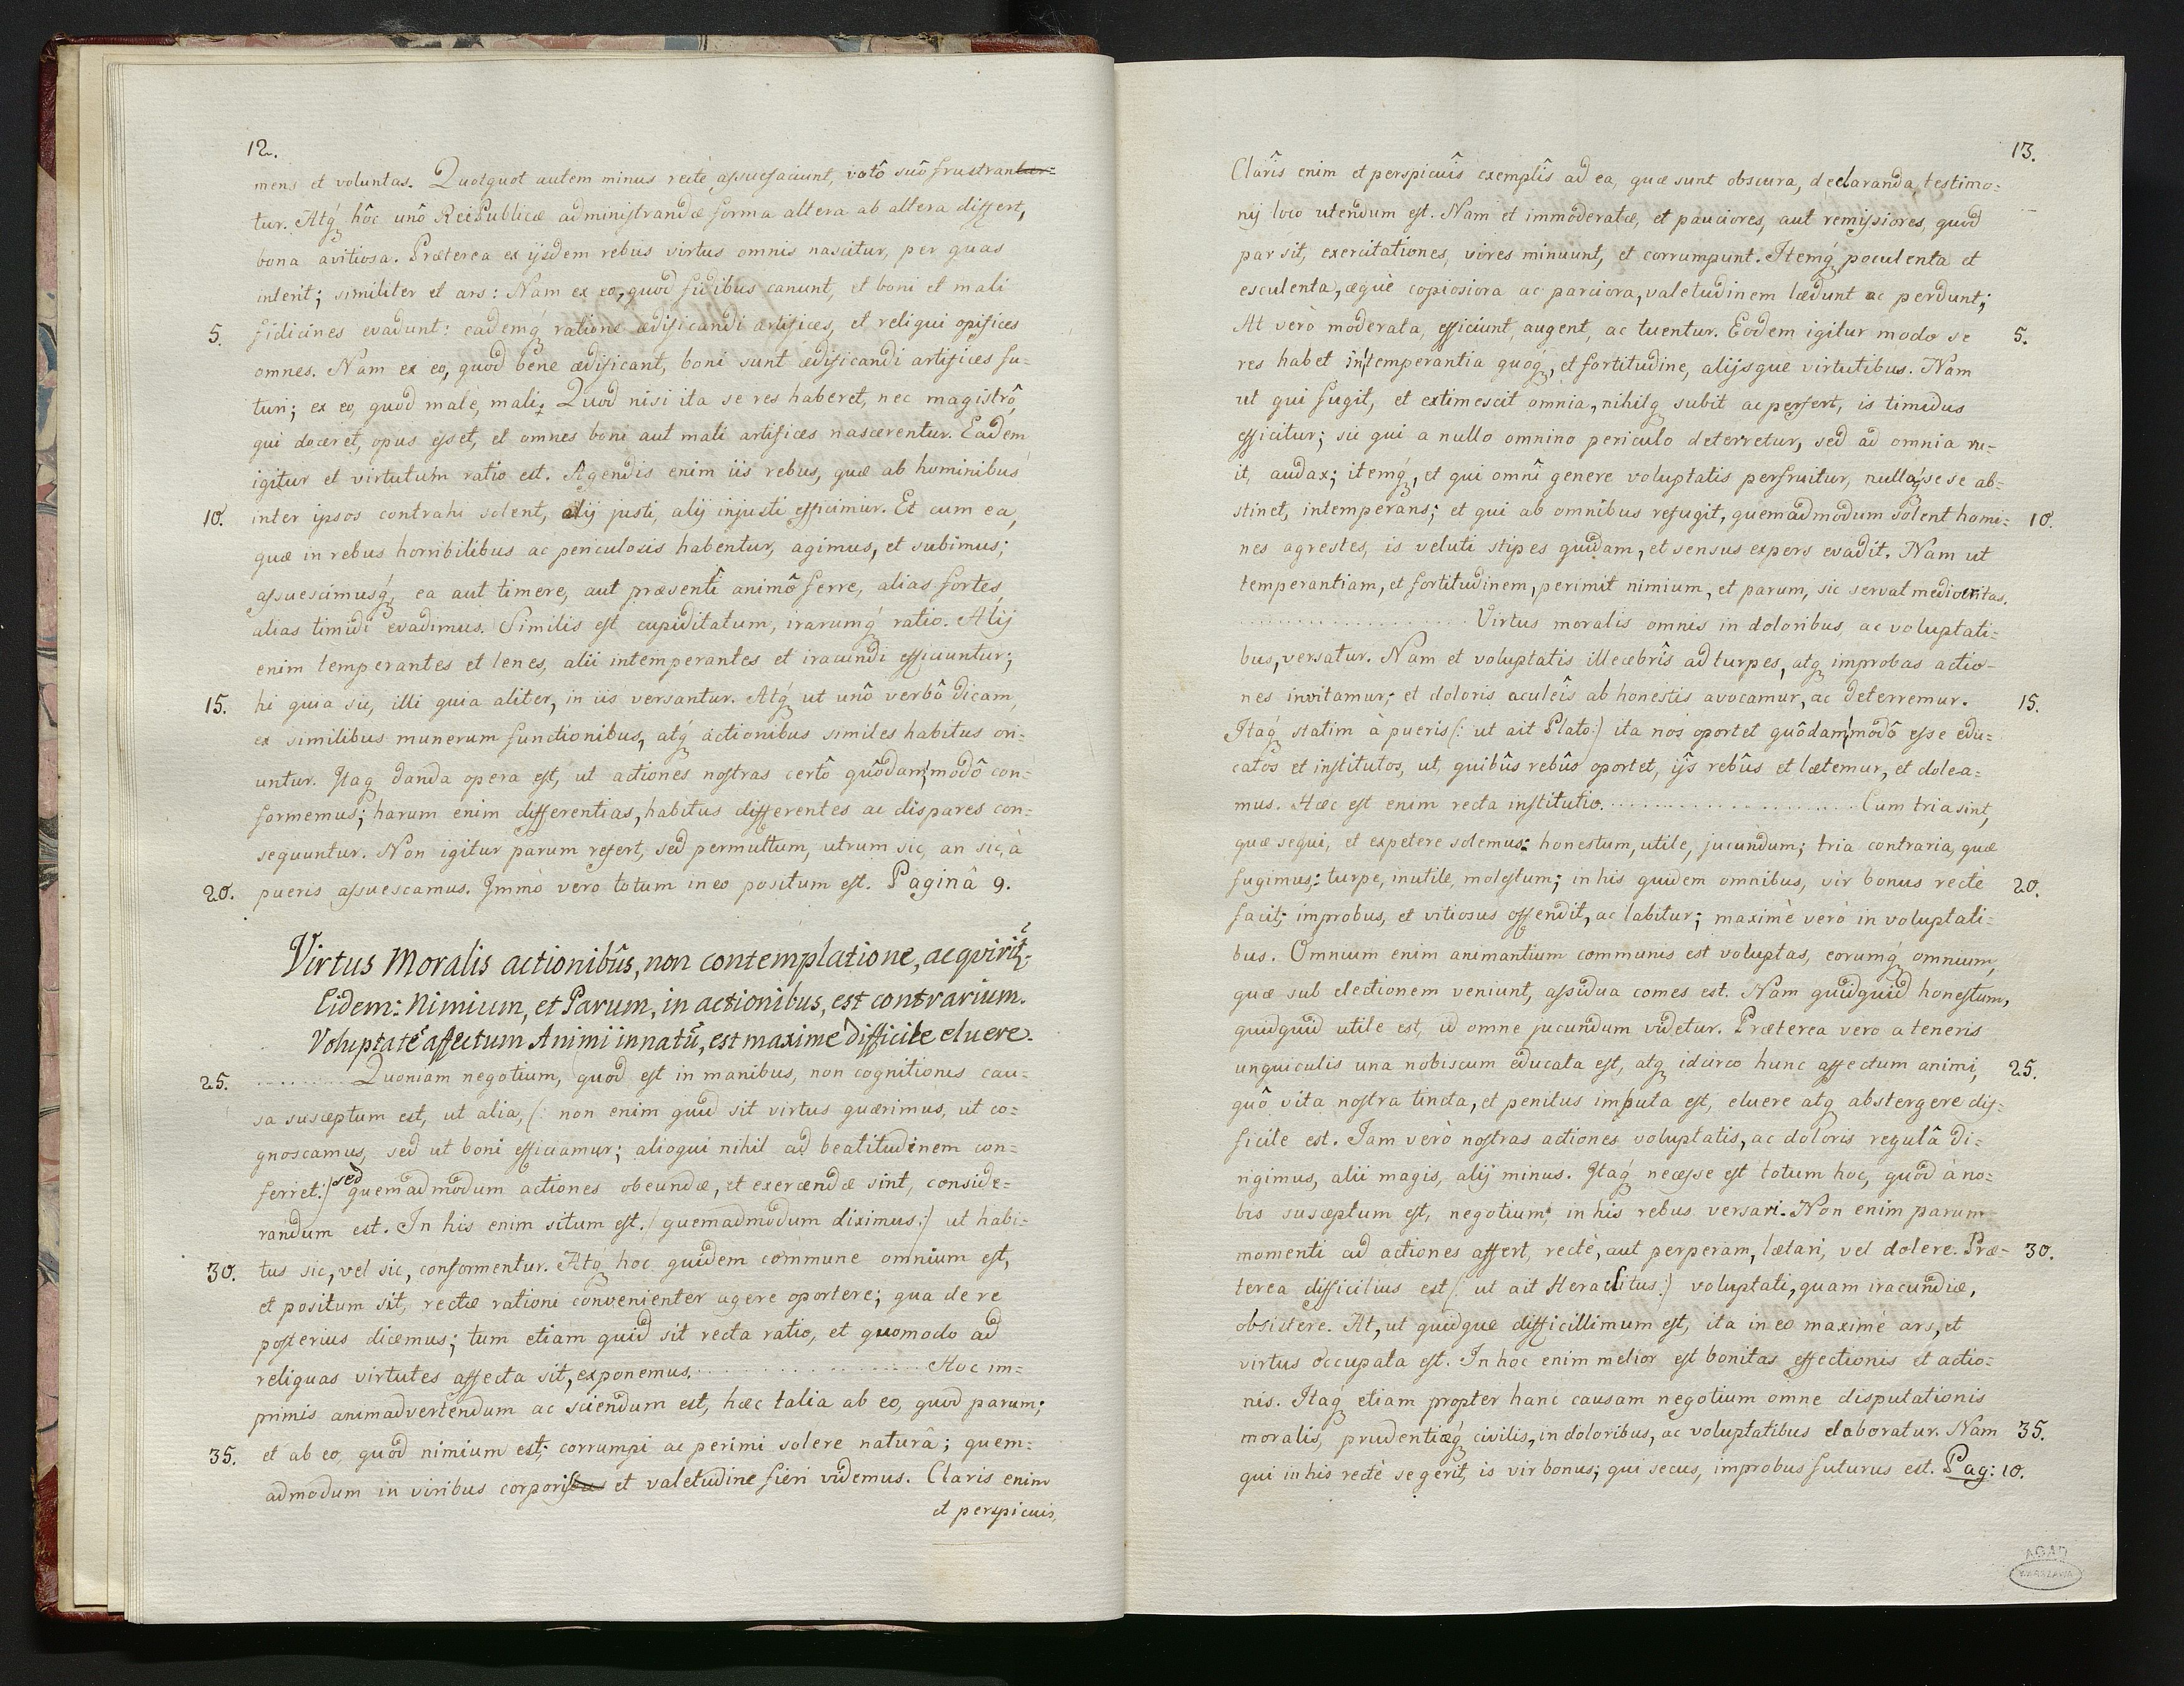 12.
mens et voluntas. Quotquot autem minus rectè assuefaciunt, votô suô frustrantur=
tur. Atq́ hôc unô ReiPublicæ administrandæ forma altera ab altera differt,
bona a vitiosa. Præterea ex ijsdem rebus virtus omnis nascitur, per quas
interit; similiter et ars: Nam ex eo, quod fidibus canunt, et boni et mali
5. fidicines evadunt: eademq́ ratione ædificandi artifices, et reliqui opifices
omnes. Nam ex eo, quod bene ædificant, boni sunt ædificandi artifices fu=
turi; ex eo, quod malè, mali; Quod nisi ita se res haberet, nec magistrô,
qui doceret, opus esset, et omnes boni aut mali artifices nascerentur. Eadem
igitur et virtutum ratio est. Agendis enim iis rebus, quæ ab hominibus
10. inter ipsos contrahi solent, alij justi, alij injusti efficimur. Et cum ea,
quæ in rebus horribilibus ac periculosis habentur, agimus, et subimus;
assuescimusq́, ea aut timere, aut præsentî animô ferre, alias fortes,
alias timidi evadimus. Similis est cupiditatum, irarumq́ ratio. Alij
enim temperantes et lenes, alii intemperantes et iracundi efficiuntur;
15. hi quia sic, illi quia aliter, in iis versantur. Atq́ ut unô verbô dicam,
ex similibus munerum functionibus, atq́ actionibus similes habitus ori=
untur. Itaq danda opera est, ut actiones nostras certô quôdam modô con=
formemus; harum enim differentias, habitus differentes ac dispares con=
sequuntur. Non igitur parum refert, sed permultum, utrum sic, an sic, à
20. pueris assuescamus. Immò vero totum in eo positum est. Paginâ 9.
Virtus Moralis actionibûs, non contemplatione, acqviritr̃.
Eidem: Nimium, et Parum, in actionibus, est contrarium.
Voluptatẽ affectum Animi innatũ, est maxime difficile eluere.
25. .......... Quoniam negotium, quod est in manibus, non cognitionis cau=
sa susceptum est, ut alia, (: non enim quid sit virtus quærimus, ut co=
gnoscamus, sed ut boni efficiamur; alioqui nihil ad beatitudinem con=
ferret:) sed quemadmodum actiones obeundæ, et exercendæ sint, conside=
randum est. In his enim situm est (: quemadmodum diximus:) ut habi=
30. tus sic, vel sic, conformentur. Atq́ hoc quidem commune omnium est,
et positum sit, rectæ rationi convenienter agere oportere; qua de re
posterius dicemus; tum etiam quid sit recta ratio, et quomodo ad
reliquas virtutes affecta sit, exponemus. .................... Hoc im=
primis animadvertendum ac sciendum est, hæc talia ab eo, quod parum;
35. et ab eo, quod nimium est; corrumpi ac perimi solere naturâ; quem=
admodum in viribus corporisbus et valetudine fieri videmus. Claris enim
et perspicuis,
13.
Clarîs enim et perspicuîs exemplîs ad ea, quæ sunt obscura, declaranda, testimo=
nij loco utendum est. Nam et immoderatæ, et pauciores, aut remissiores, quod
par sit, exercitationes, vires minuunt, et corrumpunt. Itemq́ poculenta et
esculenta, æquè copiosiora ac parciora, valetudinem lædunt ac perdunt;
At verò moderata, efficiunt, augent, ac tuentur. Eodem igitur modo se 5.
res habet in temperantia quoq́, et fortitudine, alijsque virtutibus. Nam
ut qui fugit, et extimescit omnia, nihilq subit ac perfert, is timidus
efficitur; sic qui a nullo omnino periculo deterretur, sed ad omnia ru=
it, audax; itemq́, et qui omnî genere voluptatis perfruitur, nullaq́ sese ab=
stinet, intemperans; et qui ab omnibus refugit, quemadmodum solent homi= 10.
nes agrestes, is veluti stipes quidam, et sensus expers evadit. Nam ut
temperantiam, et fortitudinem, perimit nimium, et parum, sic servat mediocritas.
.................... Virtus moralis omnis in doloribus, ac voluptati=
bus, versatur. Nam et voluptatis illecebrîs ad turpes, atq improbas actio=
nes invitamur; et doloris aculeîs ab honestis avocamur, ac deterremur. 15.
Itaq́ statim à pueris (: ut ait Plato:) ita nos oportet quôdam modô esse edu=
catos et institutos, ut, quibûs rebûs oportet, ijs rebûs et lætemur, et dolea=
mus. Hæc est enim recta institutio. .................... Cum tria sint,
quæ sequi, et expetere solemus: honestum, utile, jucundum; tria contraria, quæ
fugimus: turpe, inutile, molestum; in his quidem omnibus, vir bonus rectè 20.
facit; improbus, et vitiosus offendit, ac labitur; maximè verò in voluptati=
bus. Omnium enim animantium communis est voluptas, eorumq́ omnium,
quæ sub electionem veniunt, assidua comes est. Nam quidquid honestum,
quidquid utile est, id omne jucundum videtur. Præterea vero a teneris
unguiculis una nobiscum educata est, atq idcirco hunc affectum animi, 25.
quô vita nostra tincta, et penitus imbuta est, eluere atq abstergere dif=
ficile est. Jam verò nostras actiones voluptatis, ac doloris regulâ di=
rigimus, alii magis, alij minus. Itaq́ necesse est totum hoc, quod à no=
bis susceptum est, negotium, in his rebus versari. Non enim parum
momenti ad actiones affert, rectè, aut perperam, lætari, vel dolere. Præ= 30.
terea difficilius est (: ut ait Heraclitus:) voluptati, quam iracundiæ,
obsistere. At, ut quidque difficillimum est, ita in eo maximè ars, et
virtus occupata est. In hoc enim melior est bonitas effectionis et actio=
nis. Itaq́ etiam propter hanc causam negotium omne disputationis
moralis, prudentiæq́ civilis, in doloribus, ac voluptatibus elaboratur. Nam 35.
qui in his rectè se gerit, is vir bonus; qui secus, improbus futurus est. Pag: 10.
AGAD
WARSZAWA